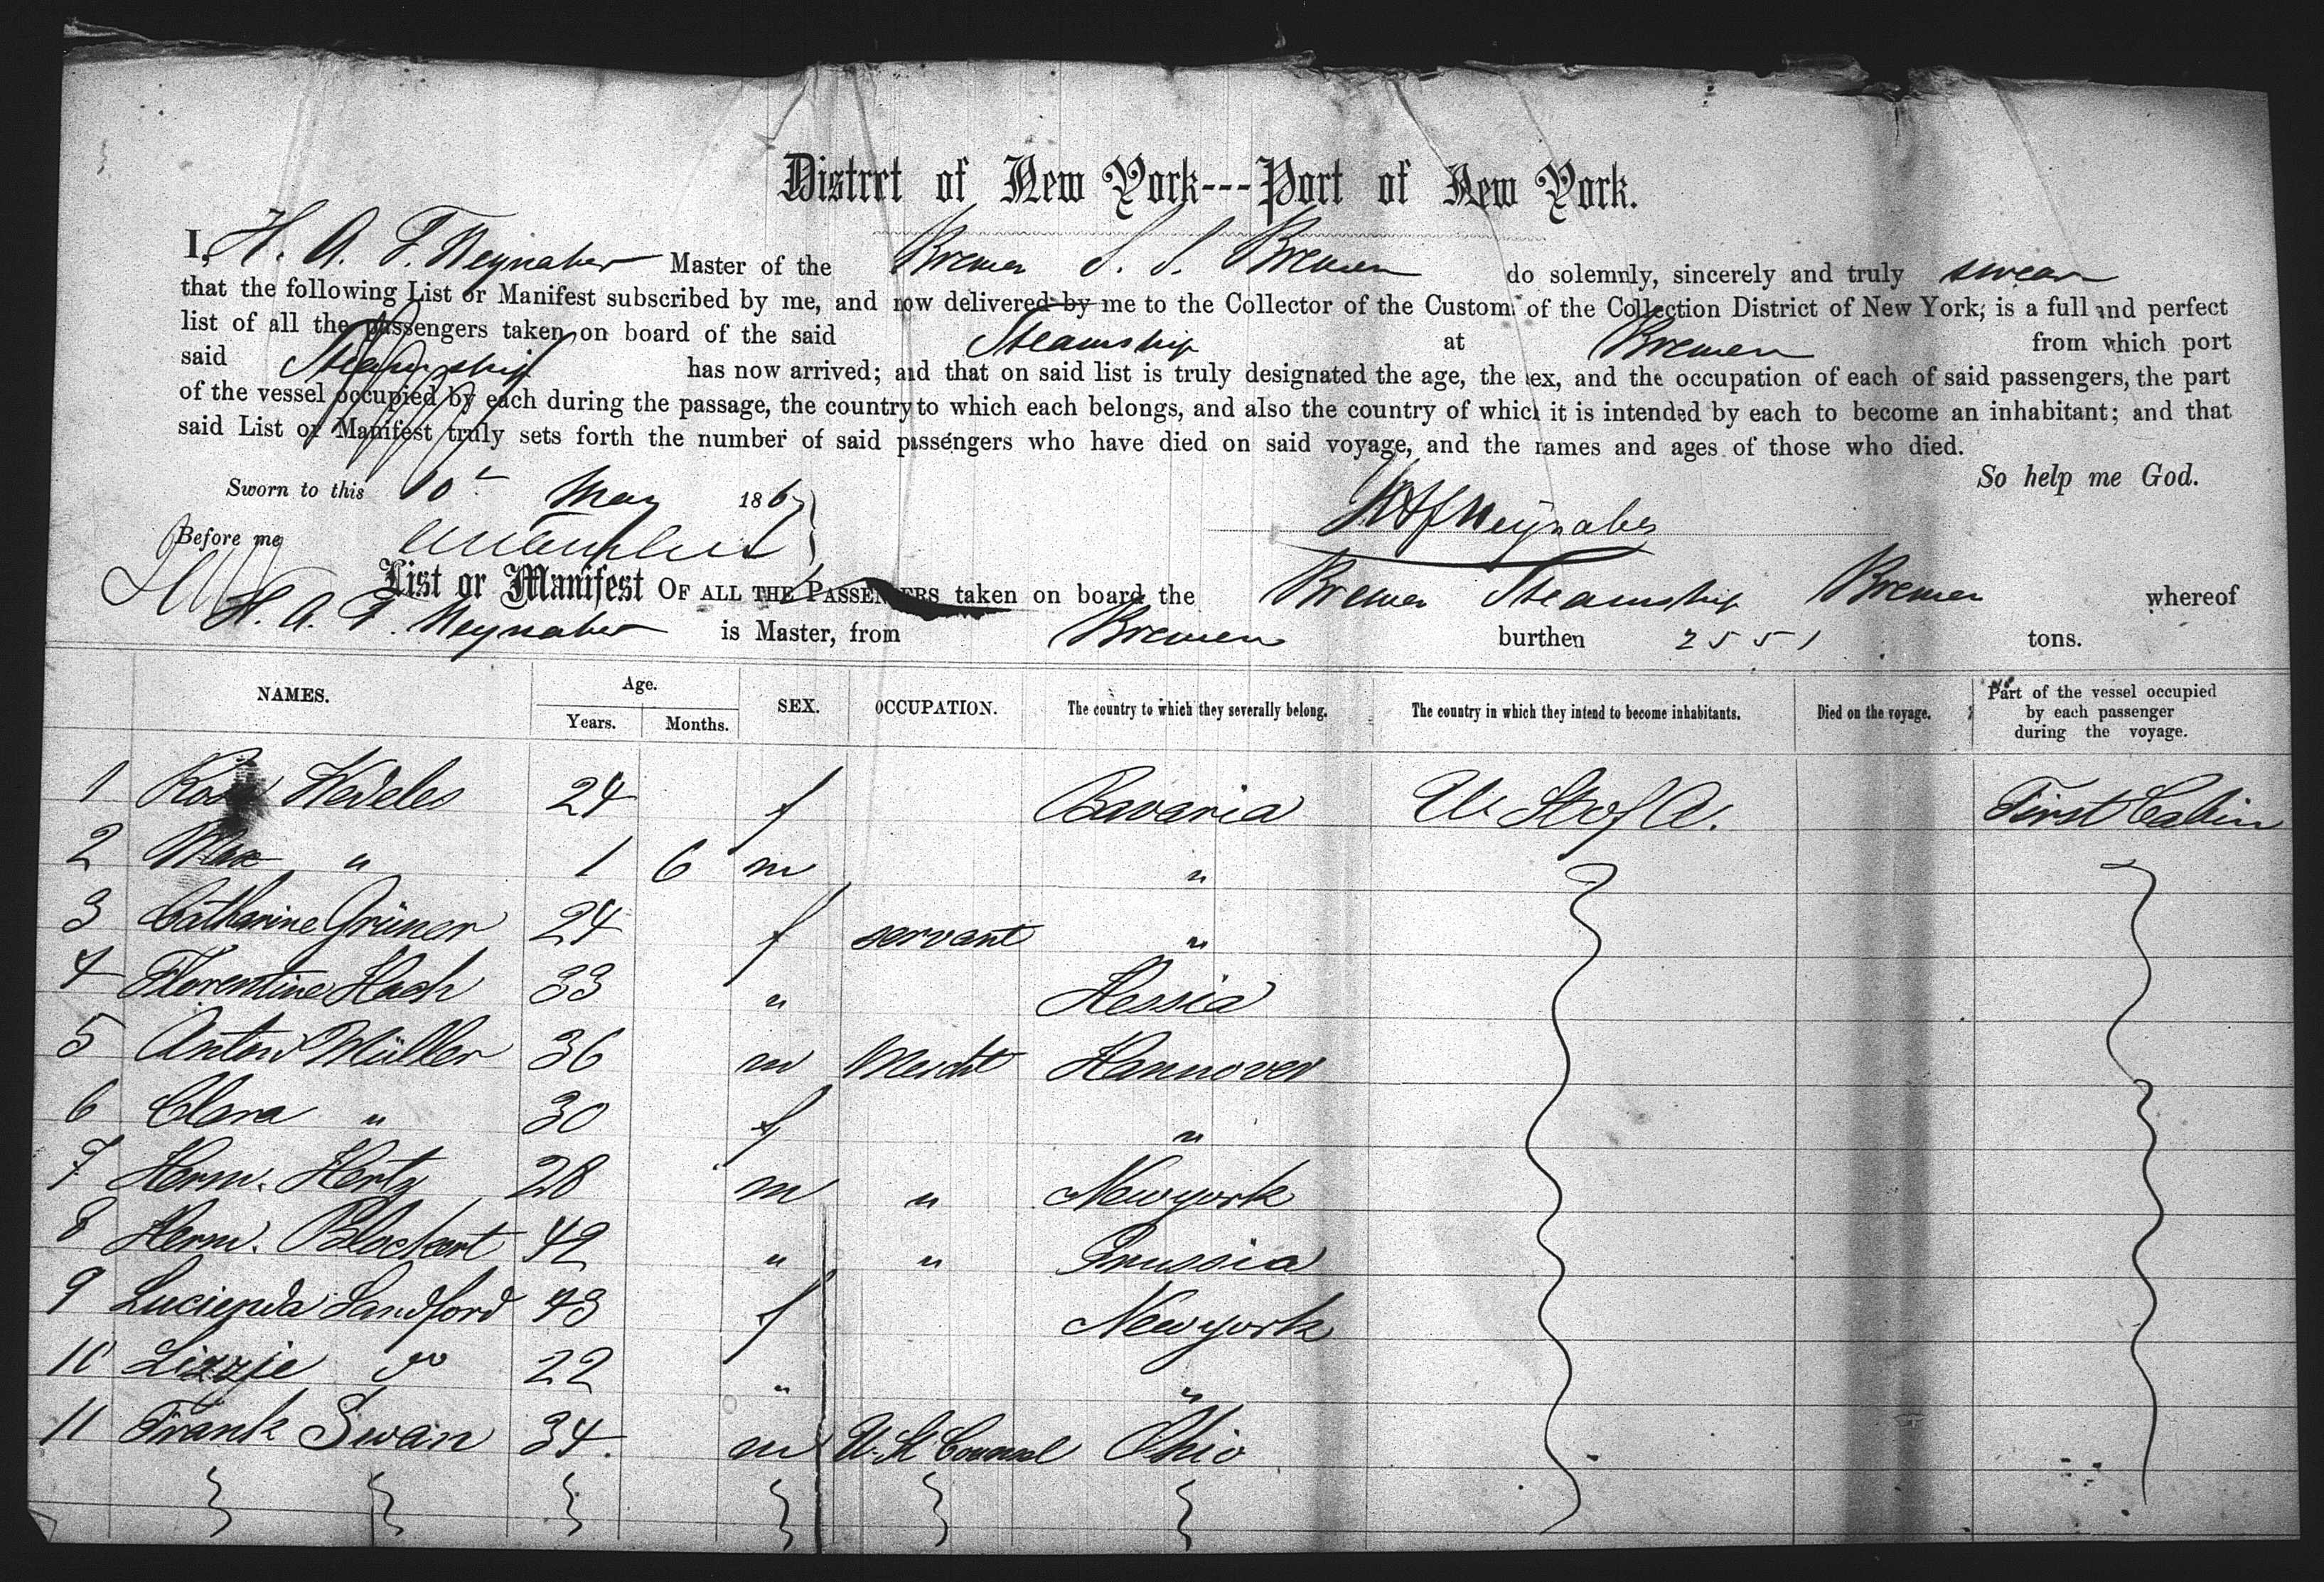 District of New York---Port of New York.
I, H. A. F. Neynaber Master of the Bremen S. S. Bremen do solemnly, sincerely and truly swear
that the following List or Manifest subscribed by me, and now delivered by me to the Collector of the Customs of the Collection District of New York; is a full and perfect
list of all the passengers taken on board of the said Steamship at Bremen from which port
said Steamship has now arrived; and that on said list is truly designated the age, the sex, and the occupation of each of said passengers, the part
of the vessel occupied by each during the passage, the country to which each belongs, and also the country of which it is intended by each to become an inhabitant; and that
said List or Manifest truly sets forth the number of said passengers who have died on said voyage, and the names and ages of those who died.
So help me God.
Sworn to this 10 May 1867
HAFNeynaber
Before me
List or Manifest OF ALL THE PASSENGERS taken on board the Bremen Steamship Bremen whereof
H. A. F. Neynaber is Master, from Bremen burthen 2551 tons.
NAMES. Age. Years. Months. SEX. OCCUPATION. The country to which they severally belong. The country in which they intend to become inhabitants. Died on the voyage. Part of the vessel occupied by each passenger during the voyage.
1 Rosa Wedeles 24 f Bavaria U. St of A. First Cabin
2 Max " 1 6 m "
3 Catharine Grüner 24 f servant "
4 Florentine Hach 33 " Hessia
5 Anton Müller 36 m Mercht Hannover
6 Clara " 30 f "
7 Herm. Hertz 28 m " Newyork
8 Herm. Blockert 42 " " Prussia
9 Lucienda Landford 43 f Newyork
10 Lizzie do 22 " "
11 Frank Swan 34. m U. St Ohio